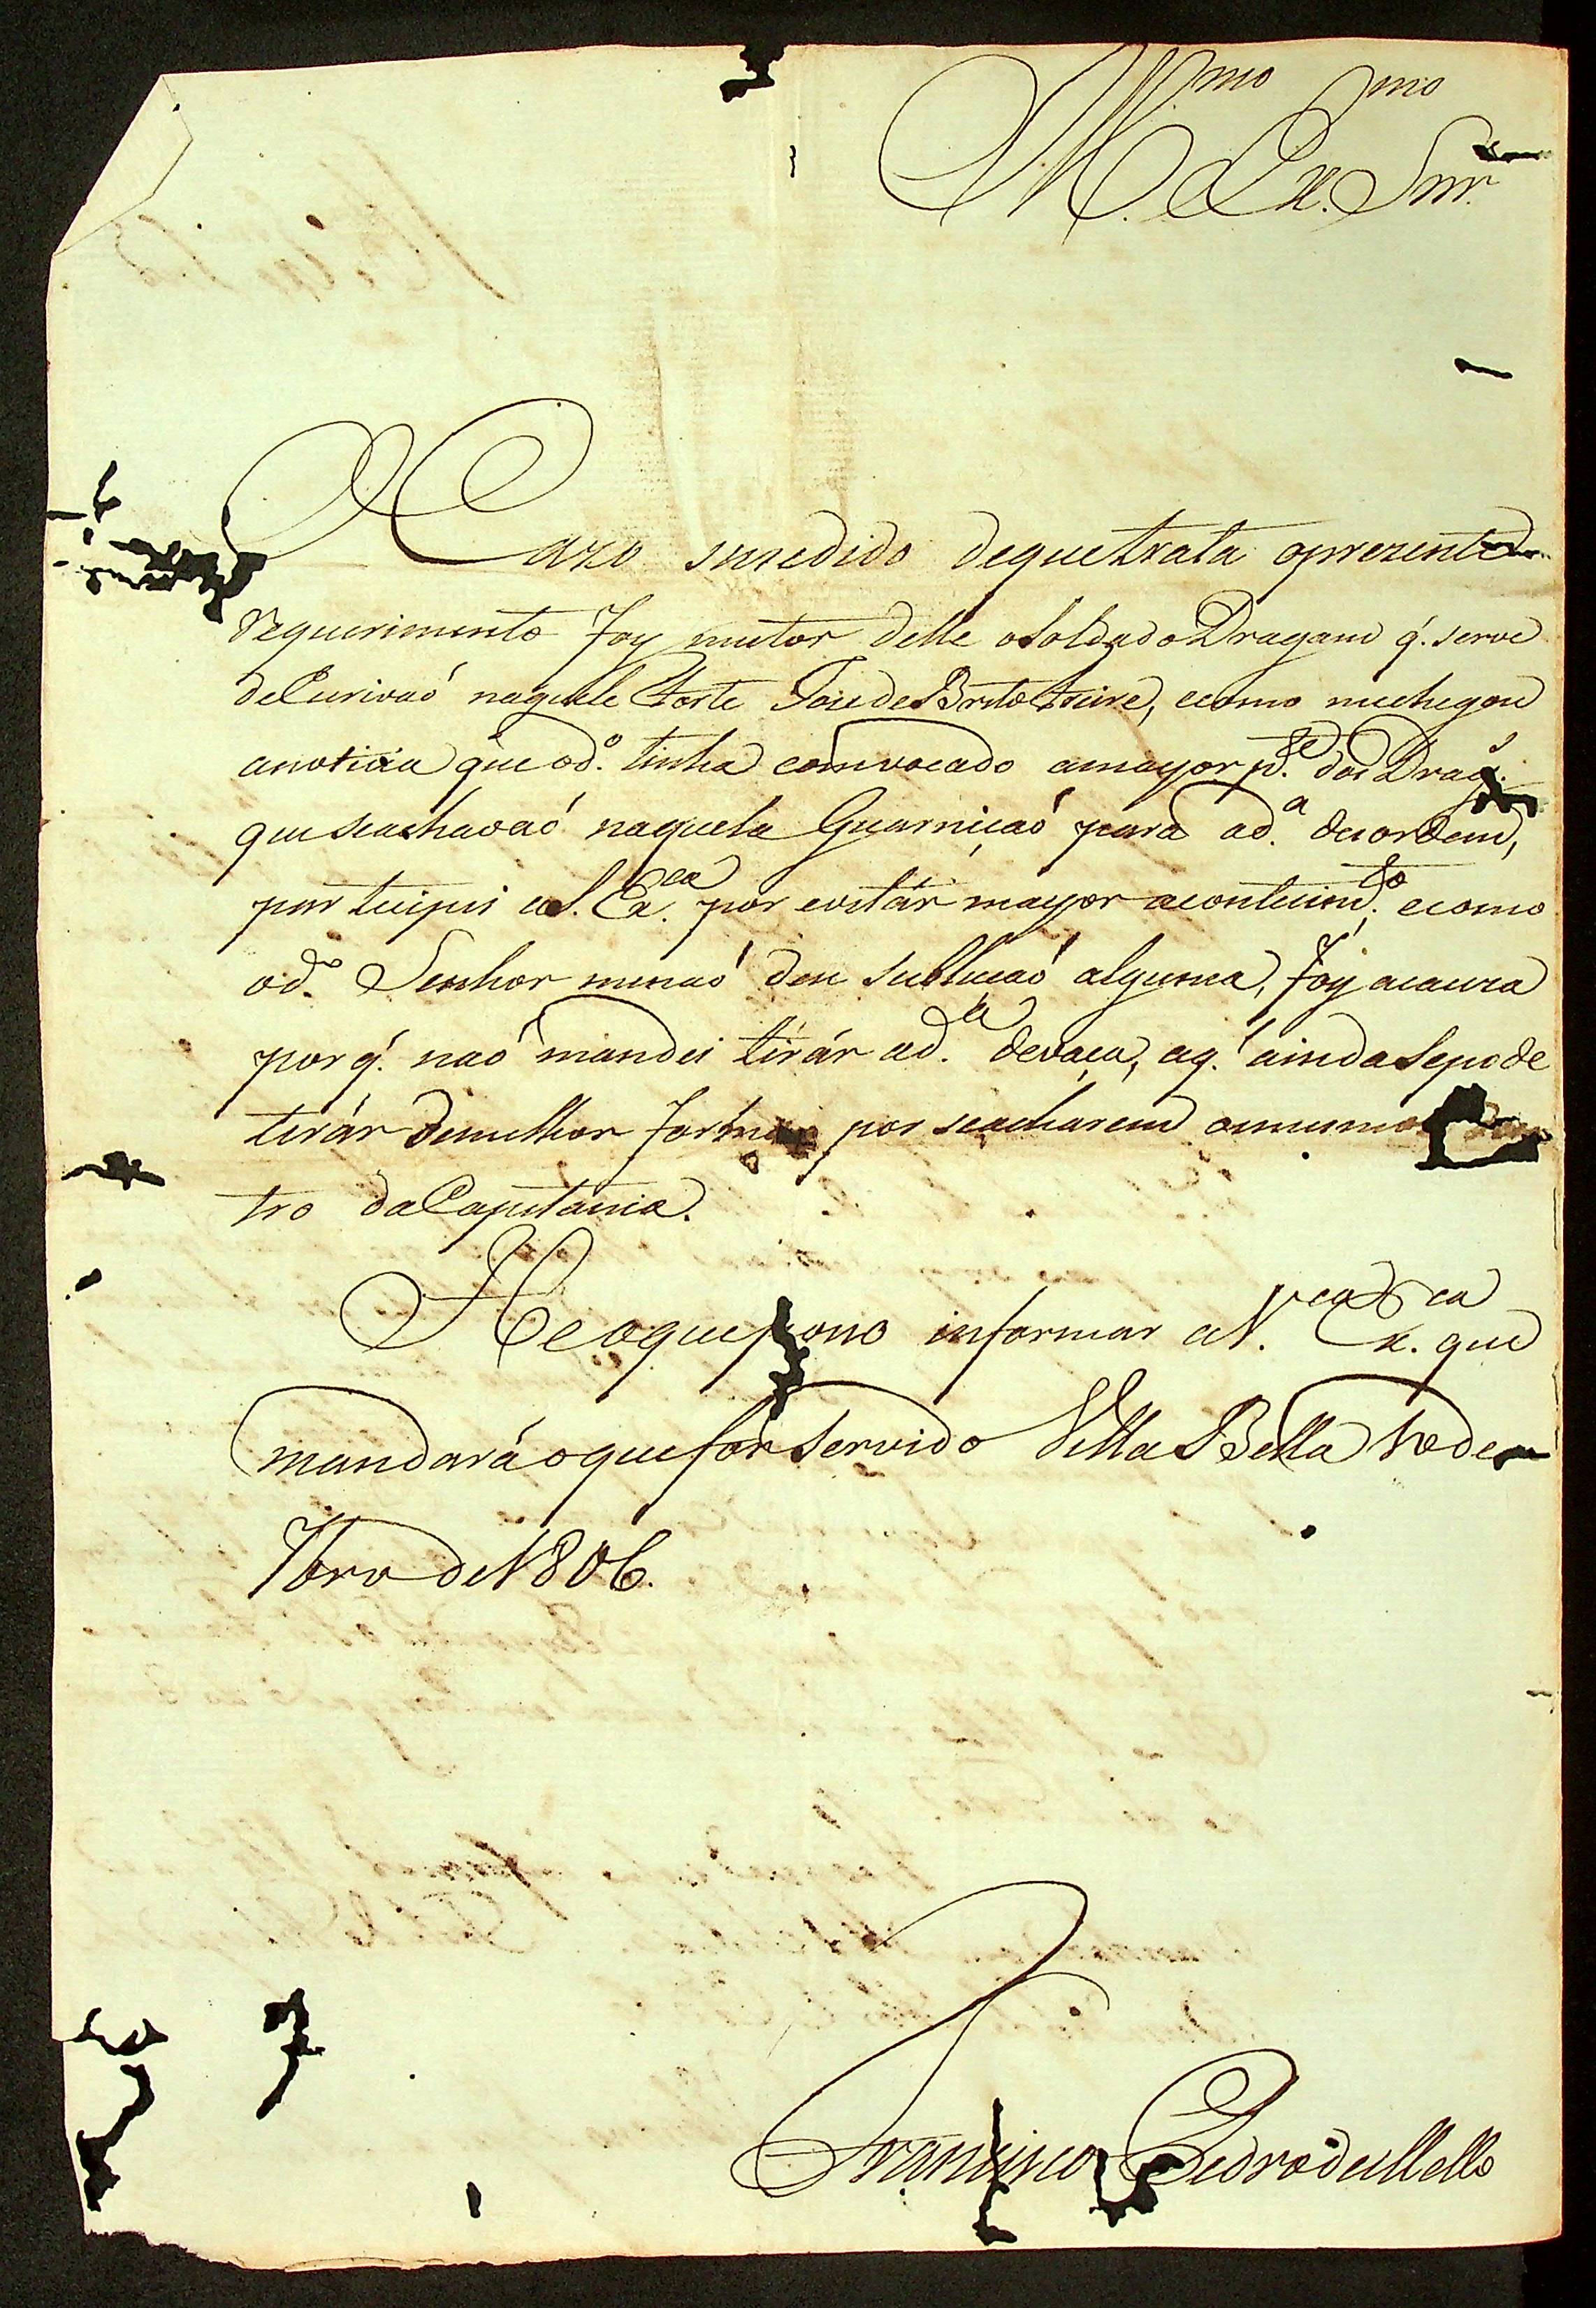 Ill.mo Ex.mo Snr.
O Cazo sucedido de que trata o prezente
requerimento foy mutor delle o Soldado Dragam q̃. serve
de Escrivaõ naquele Forte Joze de Brito Freire, e como me chegou
a noticia que o d.o tinha comvocado a mayor p.te dos Drag.s
que se achavaõ naquela Guarniçaõ para a d.a dezordem,
participei a S. Ex.ca por evitár mayor acontecim.to e como
o d.o Senhor me naõ deu sulluçaõ alguma, foy a cauza
por q̃. naõ mandei tirár a d.a devaça, a q̃. ainda se pode
tirár de milhor forma por se acharem o mesmo
tro da Capitania.
He o que posso informar a V. Ex.ca que
mandará o que for servido Villa Bella de
7bro de 1806.
Francisco Pedro de Mello